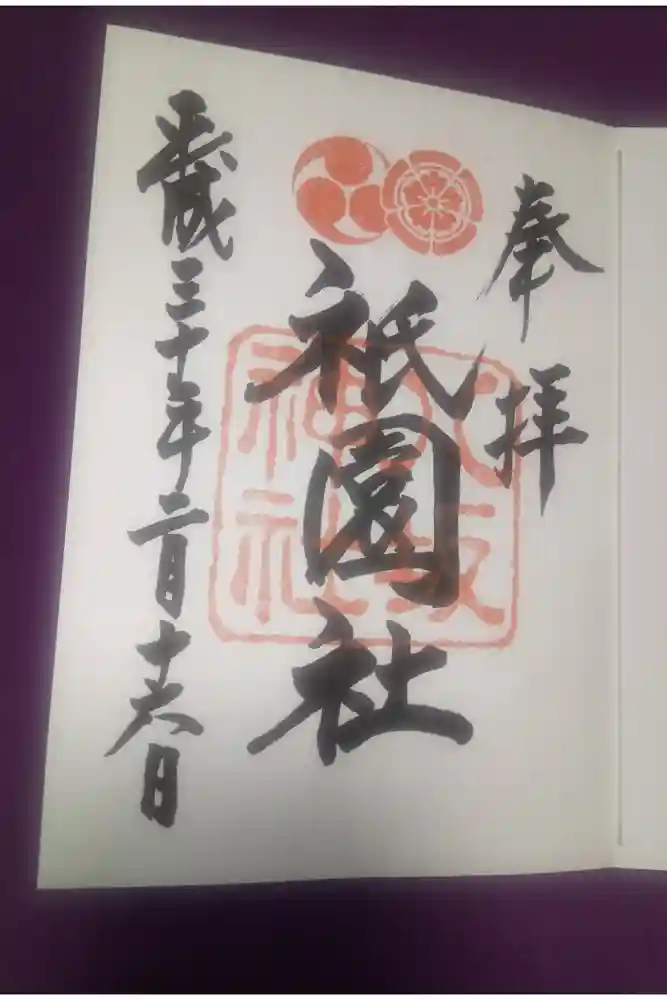 奉拝
祇園社
八坂
神社
平成三十年二月十六日